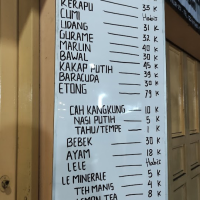 KERAPU 35 K
CUMI Habis
LIDANG 31 K
GURAME 32 K
MARLIN 40 K
BAWAL 30 K
KAKAP PUTIH 45 K
BARACUDA 39 K
ETONG 30 K
79 K
CAH KANGKUNG 10 K
NASI PUTIH 5 K
TAHU/TEMPE 1 K
BEBEK 30 K
AYAM 18 K
LELE Habis
LE MINERALE 5 K
TEH MANIS 4 K
LEMON TEA 8 K